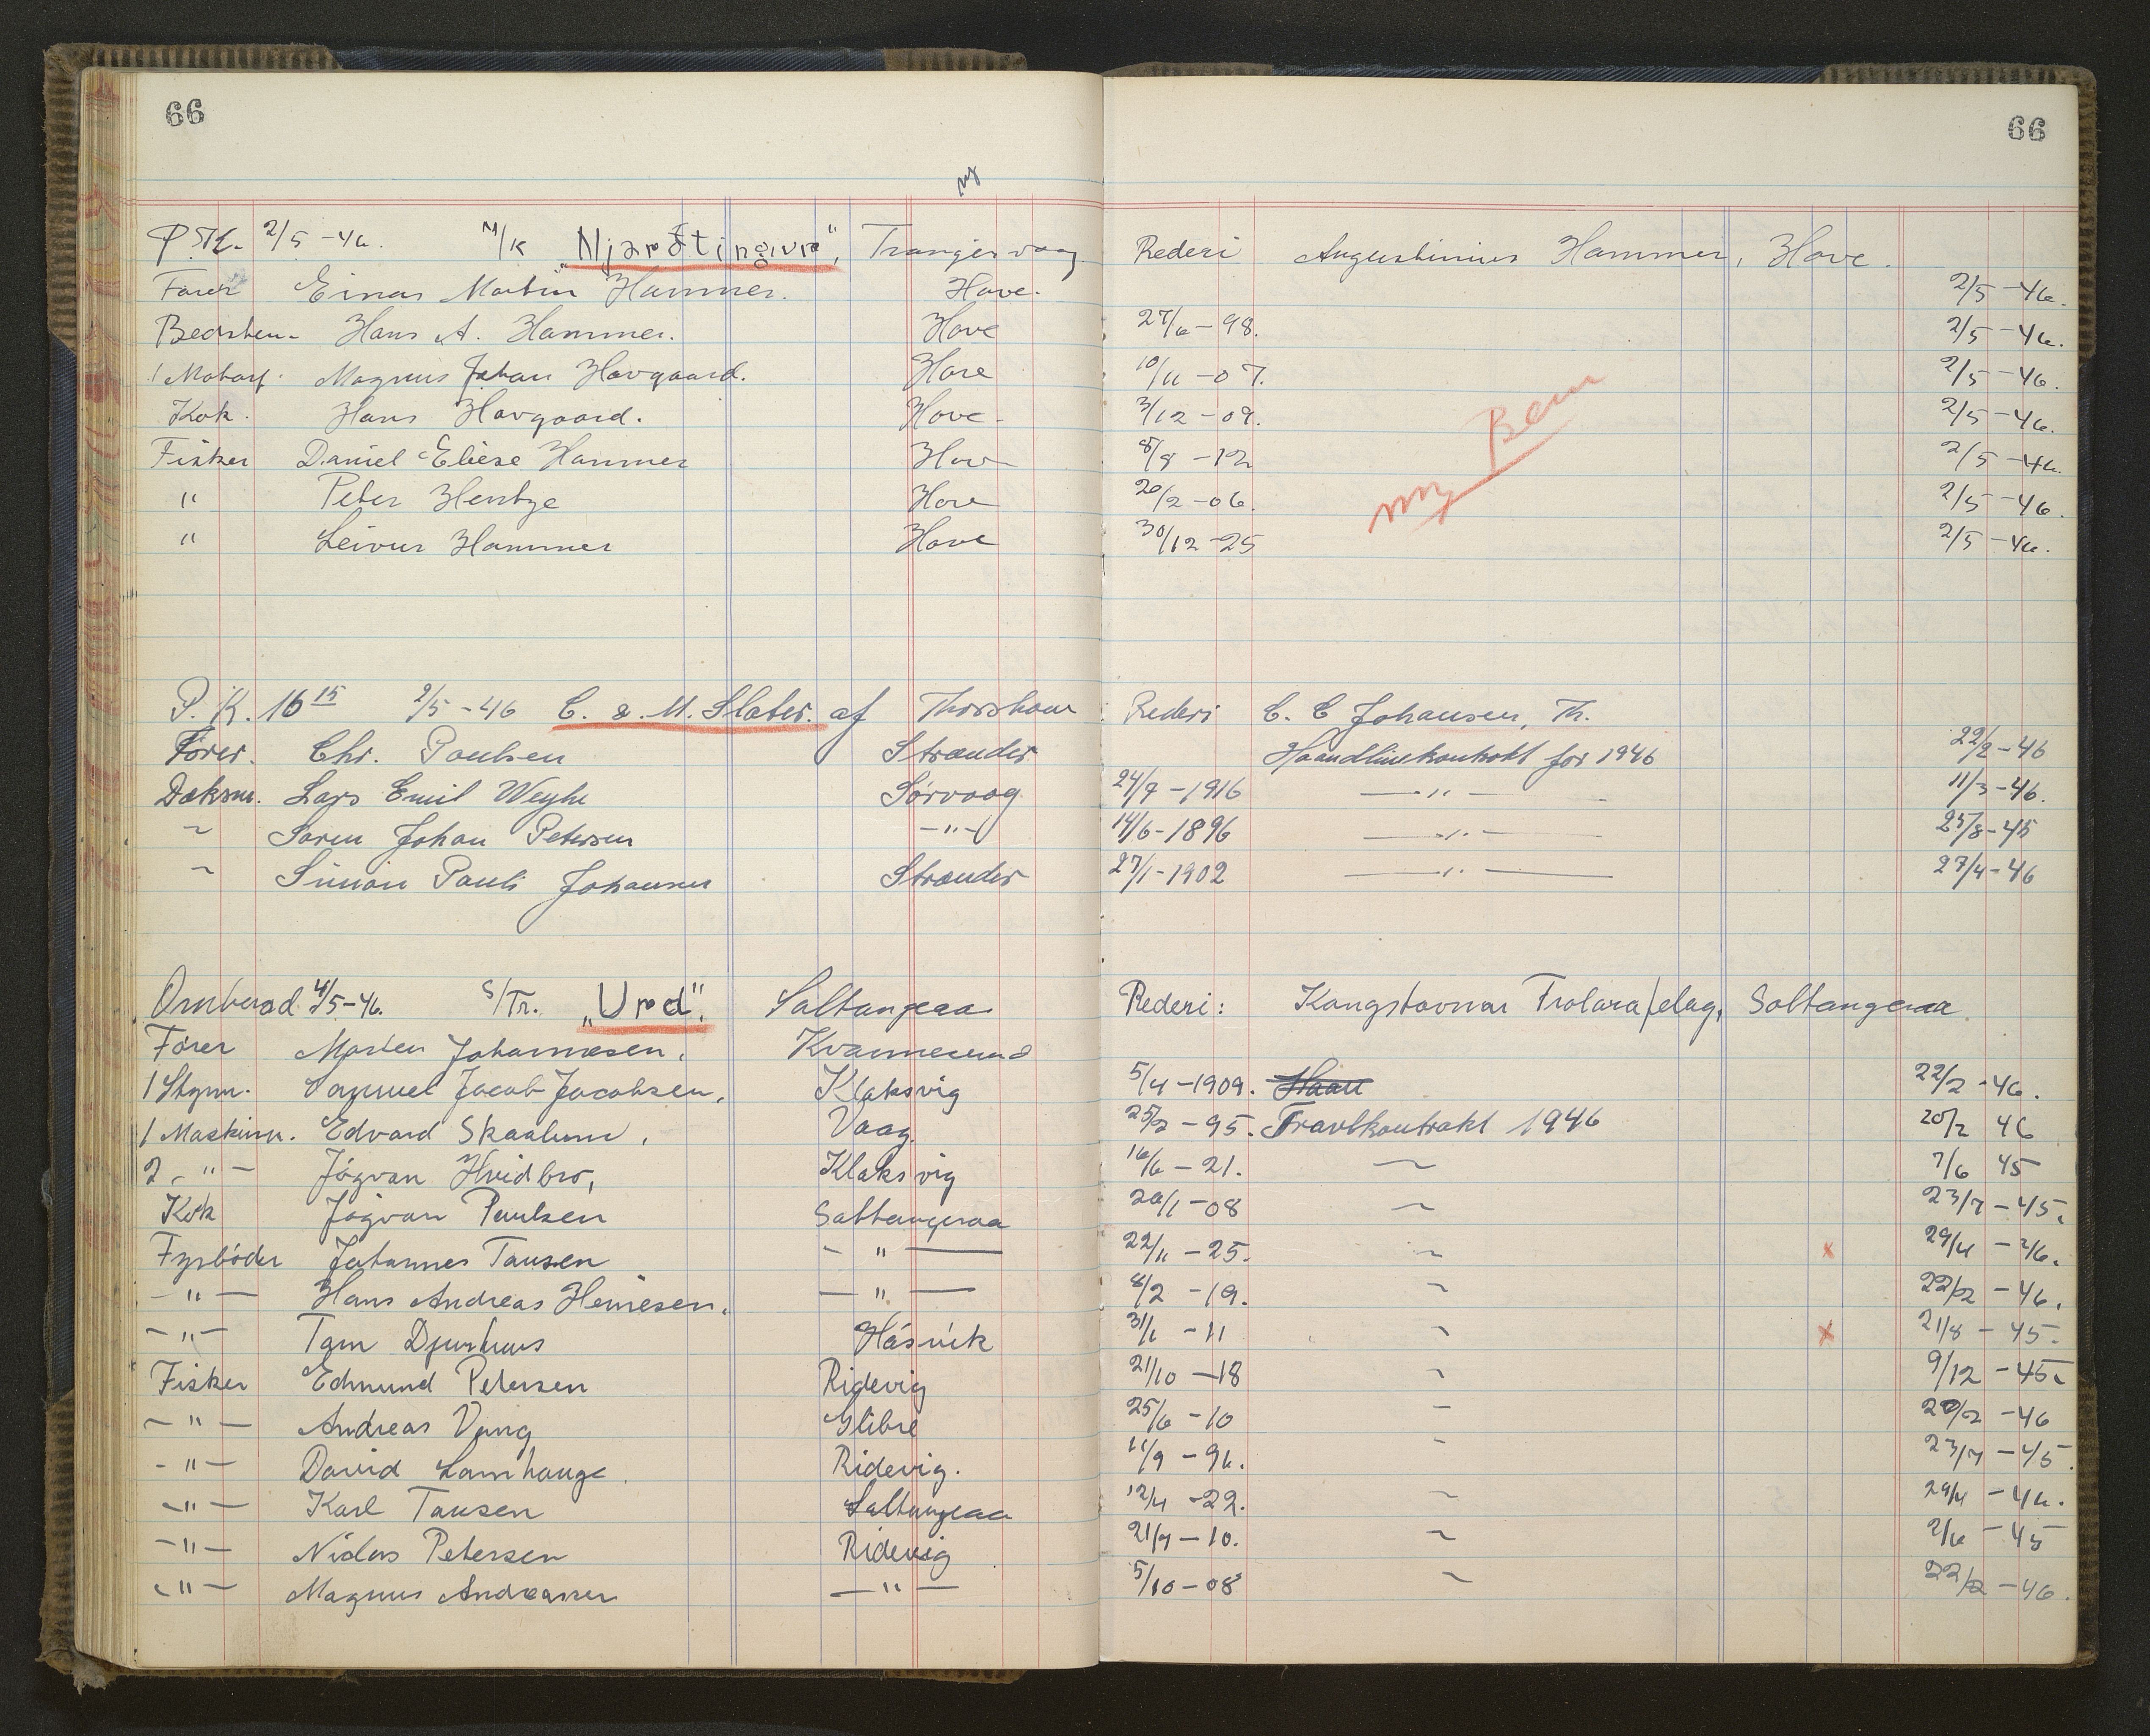 66
66
ny
P.Kl. 2/5 -46. M/K „Njarðtingivri“, Trangisvaag Rederi Augustinius Hammer, Hove.
Fører Einar Martin Hammer. Hove. 2/5 -46.
Bedstem. Hans A. Hammer. Hove 27/6 - 98. 2/5 -46.
1 Motorf. Magnus Johan Hovgaard. Hove 10/11 -07. 2/5 -46.
Kok. Hans Hovgaard. Hove. 3/12 -09. 2/5 -46.
Fisker Daniel Eliese Hammer Hove 8/8 -12 2/5 -46.
" Peter Hentze Hove 20/2 -06. 2/5 -46.
" Leivur Hammer Hove 30/12 -25 2/5 -46.
ny Bem
P. K. 16 15 2/5 -46 C. & M. Slater. af Thorshavn Rederi C. C Johansen, Th.
Fører. Chr. Poulsen Strænder Haandlinekontrakt for 1946 22/2 -46
Dæksm. Lars Emil Weyhe Sørvaag 24/9 -1916 —"— 11/3 -46.
~ Søren Johan Petersen -"- 14/6 -1896 —"— 25/8 -45
~ Simon Pauli Johansen Strænder 27/1 -1902 —"— 27/4 -46
Ombord 4/5 -46. S/Tr. „Urd“, Saltangeraa Rederi: Kongshavnar Trolarafelag, Saltangeraa.
Fører Morten Johannesen, Kvannesund
1 Styrm. Samuel Jacob Jacobsen, Klaksvig 5/4 -1909. Haan 22/2 -46.
1 Maskinm. Edvard Skaalum, Vaag. 25/2 - 95. Trawlkontrakt 1946 20/2 46
2 -"- Jógvan Hvidbro, Klaksvig 16/6 - 21. ~ 7/6 45
Kok Jógvan Poulsen Saltangeraa 20/1 -08 ~ 23/7 -45.
Fyrbøder Johannes Tausen -"- 22/11 -25. ~ x 29/4 -46.
-"- Hans Andreas Heinesen, -"- 8/2 -19. ~ 22/2 -46.
-"- Tom Djurhuus Húsavík 31/1 -11 ~ x 21/8 - 45.
Fisker Edmund Petersen Ridevig 21/10 -18 ~ 9/12 -45.
-"- Andreas Vang Glibre 25/6 -10 - 20/2 -46
-"- David Lamhauge. Ridevig. 11/9 - 96. - 23/7 -45.
-"- Karl Tausen Saltangeraa 12/4 -22. ~ 29/4 -46.
-"- Niclas Petersen Ridevig 21/7 -10. ~ 2/6 - 45
-"- Magnus Andreasen -"- 5/10 -08 ~ 22/2 -46.